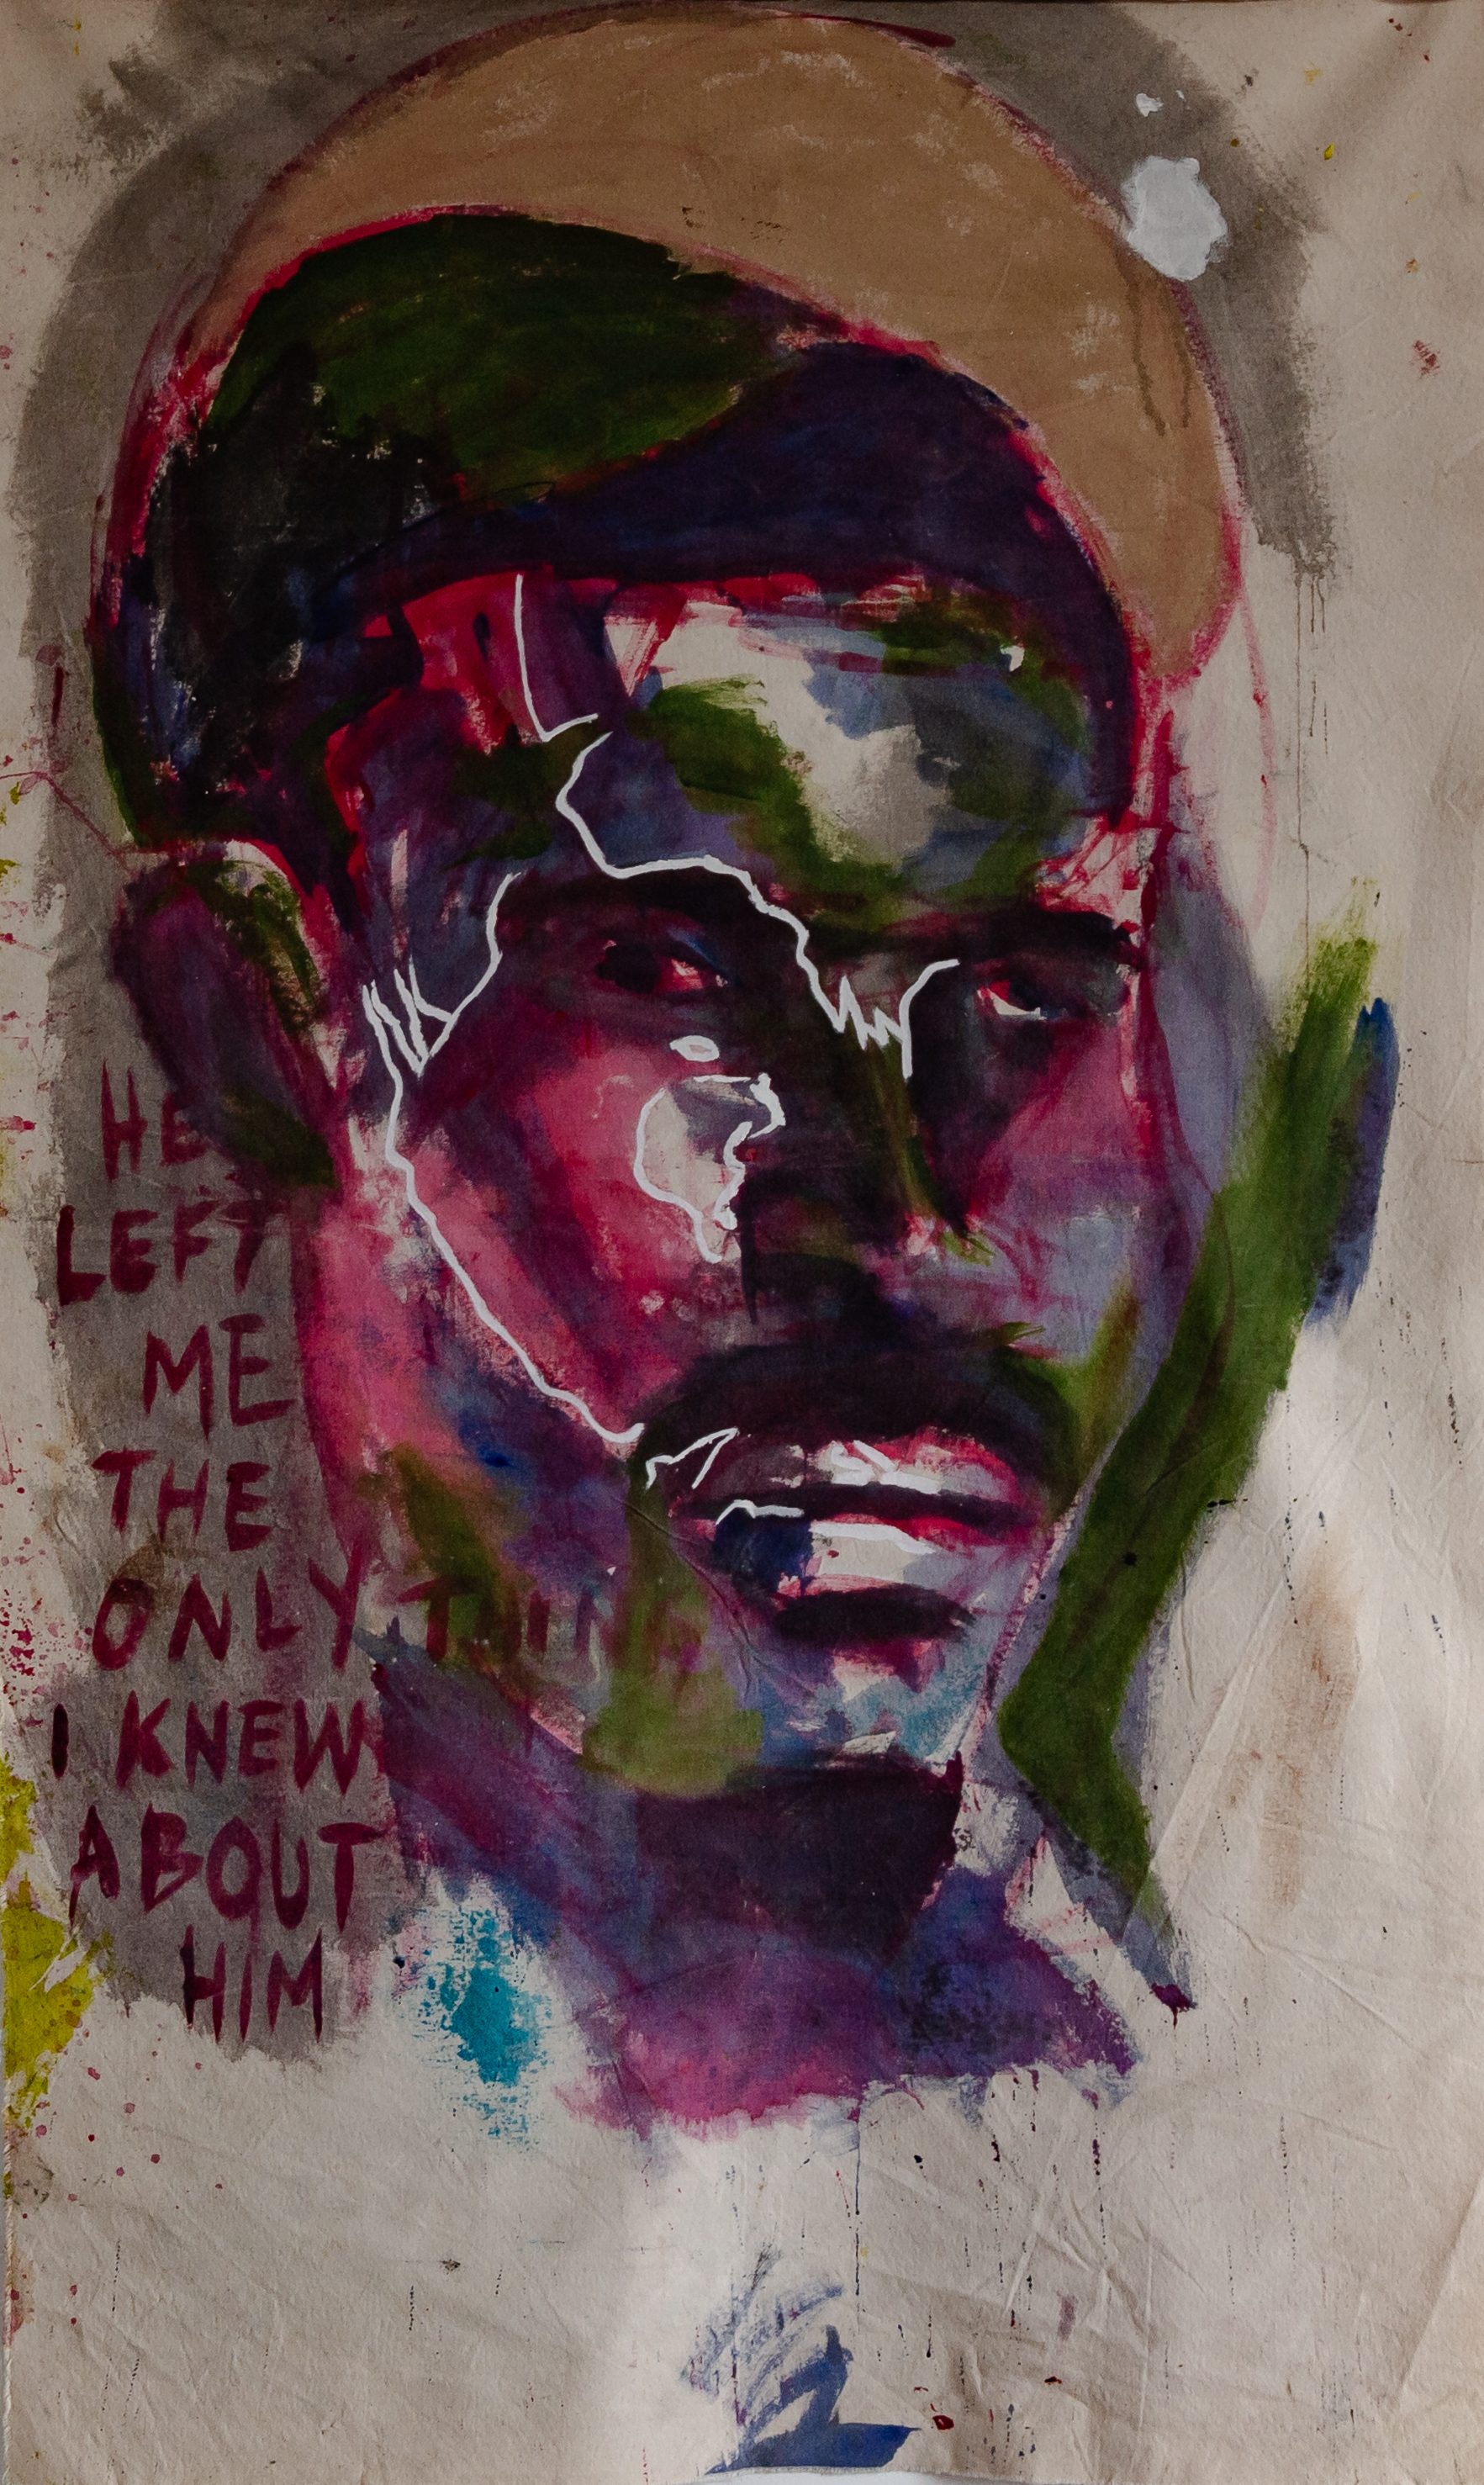 HE
LEFT
ME
THE
ONLY THING
I KNEW
ABOUT
HIM